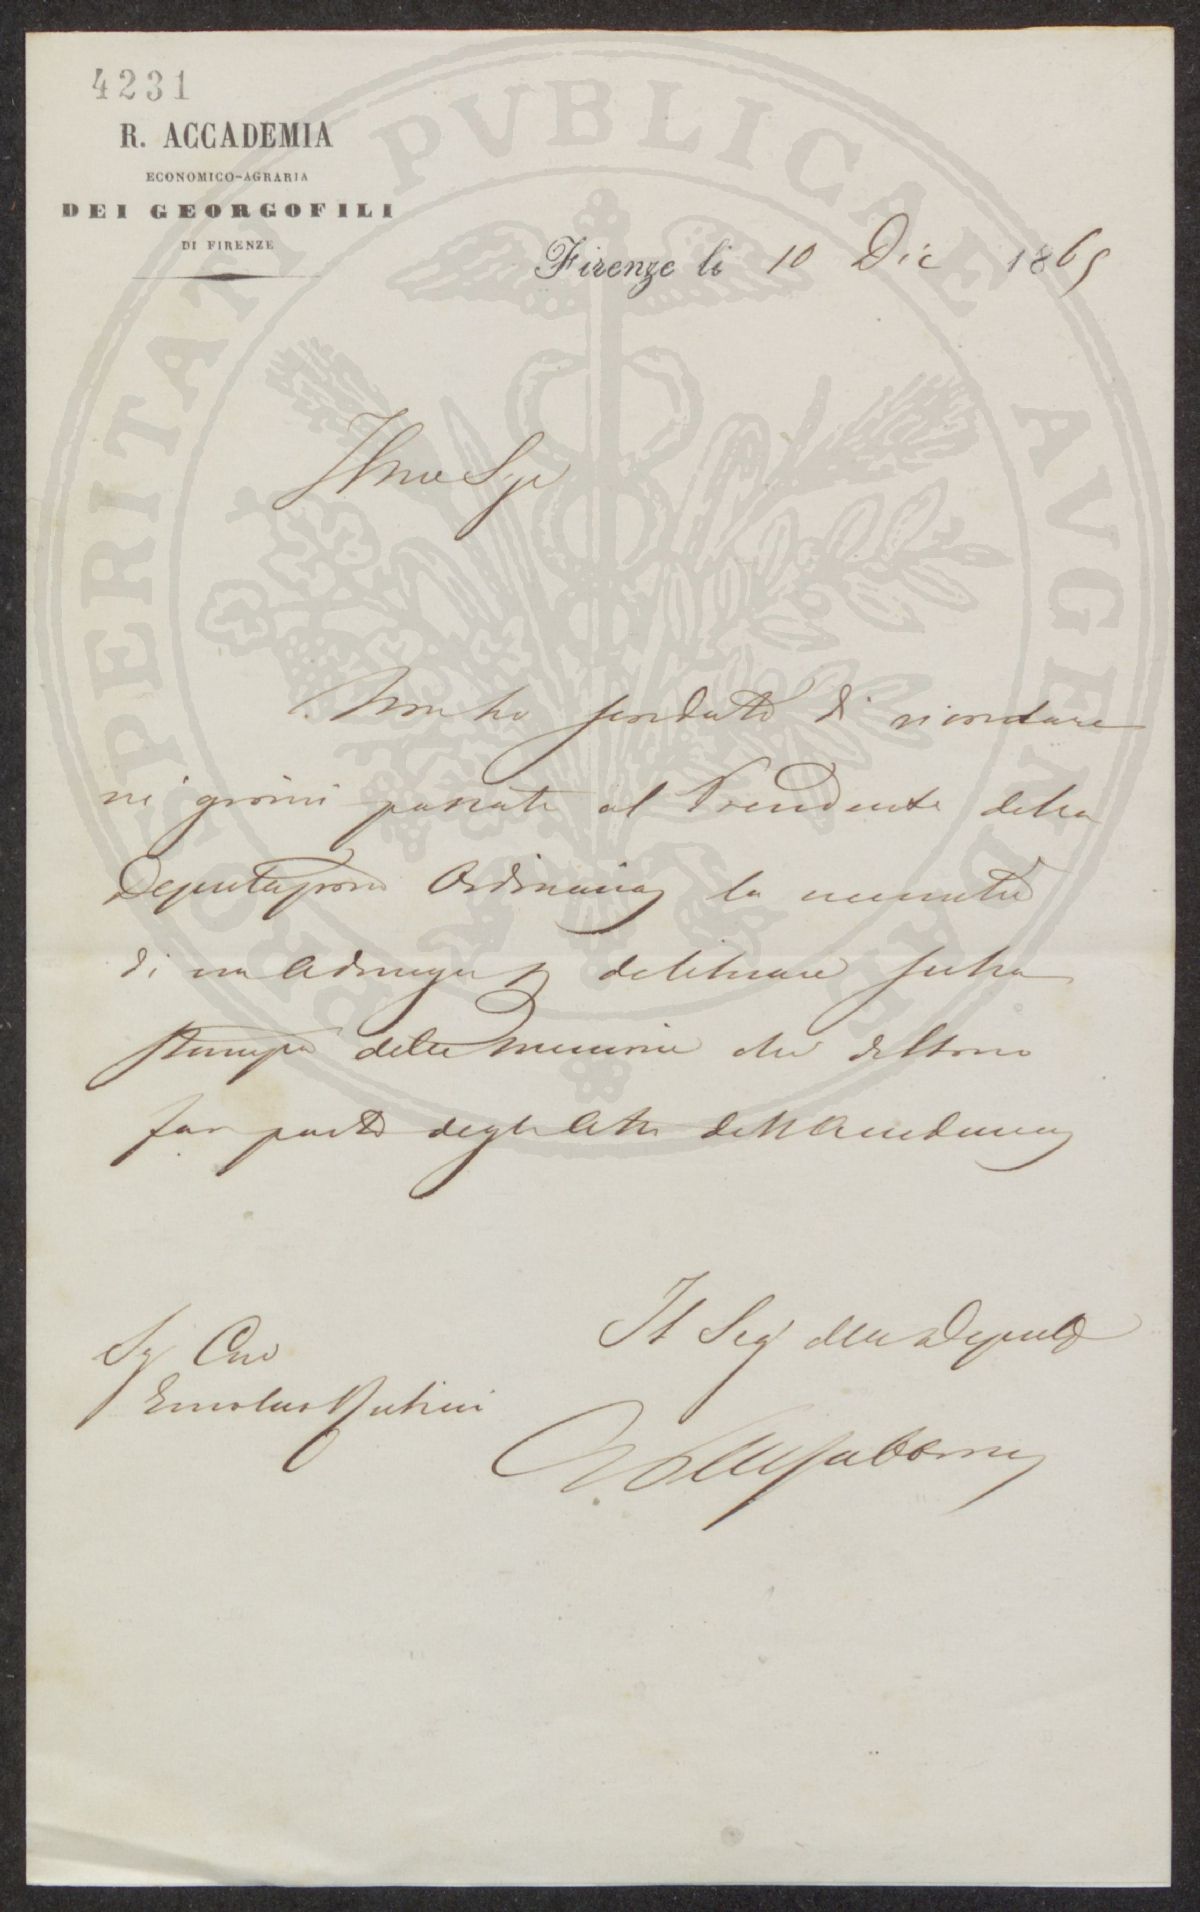 4231
R. ACCADEMIA
ECONOMICO-AGRARIA
DEI GEORGOFILI
DI FIRENZE
Firenze li 10 Dic 1865
Illmo Sigr
Non ho perduto di ricordare
nei giorni passati al Presidente della
Deputazione Ordinaria la necessità
di un Adunanza p deliberare sulla
stampa delle Memorie che debbono
far parte degli Atti dell Accademia
Sig Cav
Il Seg della Deputaz
PROSPERITATI PVBLICAE AVGENDAE